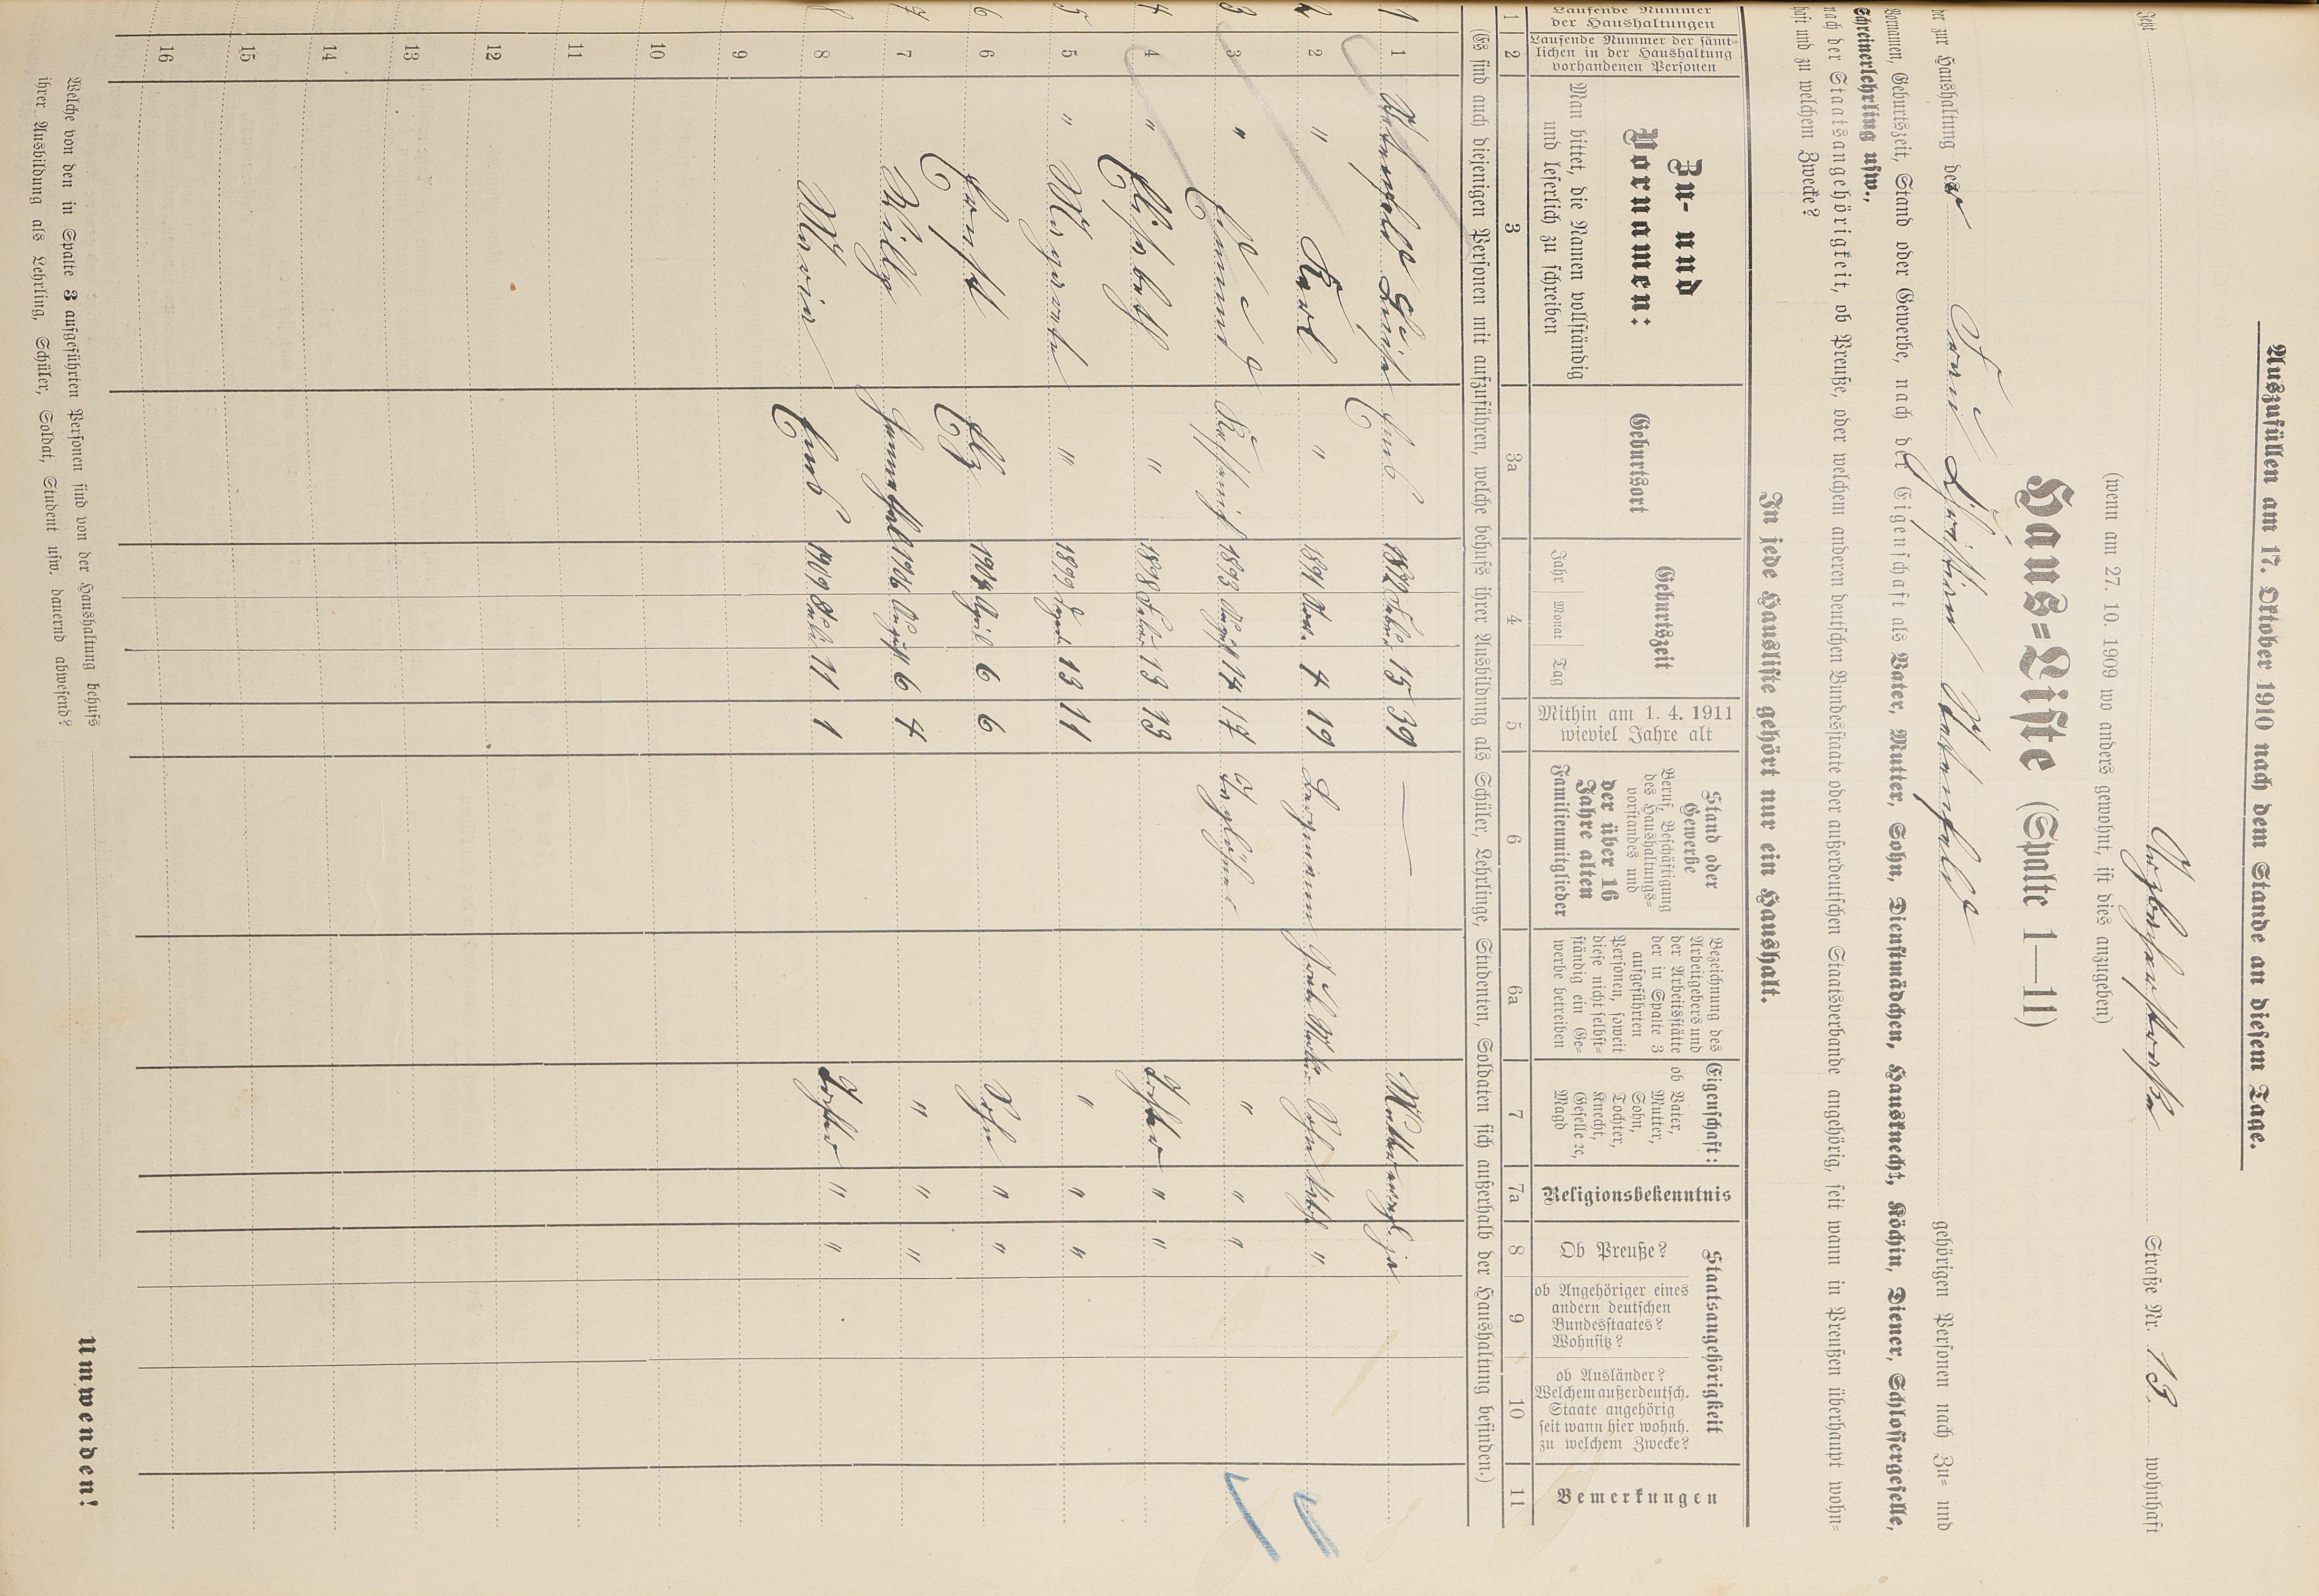 Auszufüllen am 17. Oktober 1910 nach dem Stande an diesem Tage.
Jetzt Augbacherstraße Straße Nr. 13. wohnhaft
(wenn am 27. 10. 1909 wo anders gewohnt, ist dies anzugeben)
Haus=Liste (Spalte 1—11)
der zur Haushaltung der Frau Christian gehörigen Personen nach Zu= und
Vornamen, Geburtszeit, Stand oder Gewerbe, nach der Eigenschaft als Vater, Mutter, Sohn, Dienstmädchen, Hausknecht, Köchin, Diener, Schlossergeselle,
Schreinerlehrling usw.,
nach der Staatsangehörigkeit, ob Preuße, oder welchem anderen deutschen Bundesstaate oder außerdeutschen Staatsverbande angehörig, seit wann in Preußen überhaupt wohn=
haft und zu welchem Zwecke?
In jede Hausliste gehört nur ein Haushalt.
Laufende Nummer der Haushaltungen
Laufende Nummer der sämt=lichen in der Haushaltung vorhandenen Personen
Zu- und Vornamen:
Man bittet, die Namen vollständig und leserlich zu schreiben
Geburtsort
Geburtszeit
Jahr Monat Tag
Mithin am 1. 4. 1911 wieviel Jahre alt
Stand oder Gewerbe
Beruf, Beschäftigung des Haushaltungs=vorstandes und
der über 16 Jahre alten Familienmitglieder
Bezeichnung des Arbeitgebers und der Arbeitsstätte der in Spalte 3 aufgeführten Personen, soweit diese nicht selbst=ständig ein Ge=werbe betreiben
Eigenschaft:
ob Vater, Mutter, Sohn, Tochter, Knecht, Geselle ꝛc, Magd
Religionsbekenntnis
Staatsangehörigkeit
Ob Preuße?
ob Angehöriger eines andern deutschen Bundesstaates? Wohnsitz?
ob Ausländer? Welchem außerdeutsch. Staate angehörig seit wann hier wohnh. zu welchem Zwecke?
Bemerkungen
1 2 3 3a 4 5 6 6a 7 7a 8 9 10 11
(Es sind auch diejenigen Personen mit aufzuführen, welche behufs ihrer Ausbildung als Schüler, Lehrlinge, Studenten, Soldaten sich außerhalb der Haushaltung befinden.)
1 1 Luise Ems 1872 Febr. 15 39 — Mutter evangl. ja
2 2 " Karl " 1891 Nov. 4 19 Bergmann Sohn kath. "
3 3 " Emma 1893 August 14 17 Taglöhner " " "
4 4 " Elisabeth " 1898 Febr. 13 13 Tochter " "
5 5 " Margareta " 1899 13 11 " " "
6 6 Ernst 1904 April 6 6 Sohn " "
7 7 Willy 1906 August 6 4 " " "
8 8 Maria Ems 1909 11 1 Tochter " "
9
10
11
12
13
14
15
16
Welche von den in Spalte 3 aufgeführten Personen sind von der Haushaltung behufs
ihrer Ausbildung als Lehrling, Schüler, Soldat, Student usw. dauernd abwesend?
Umwenden!